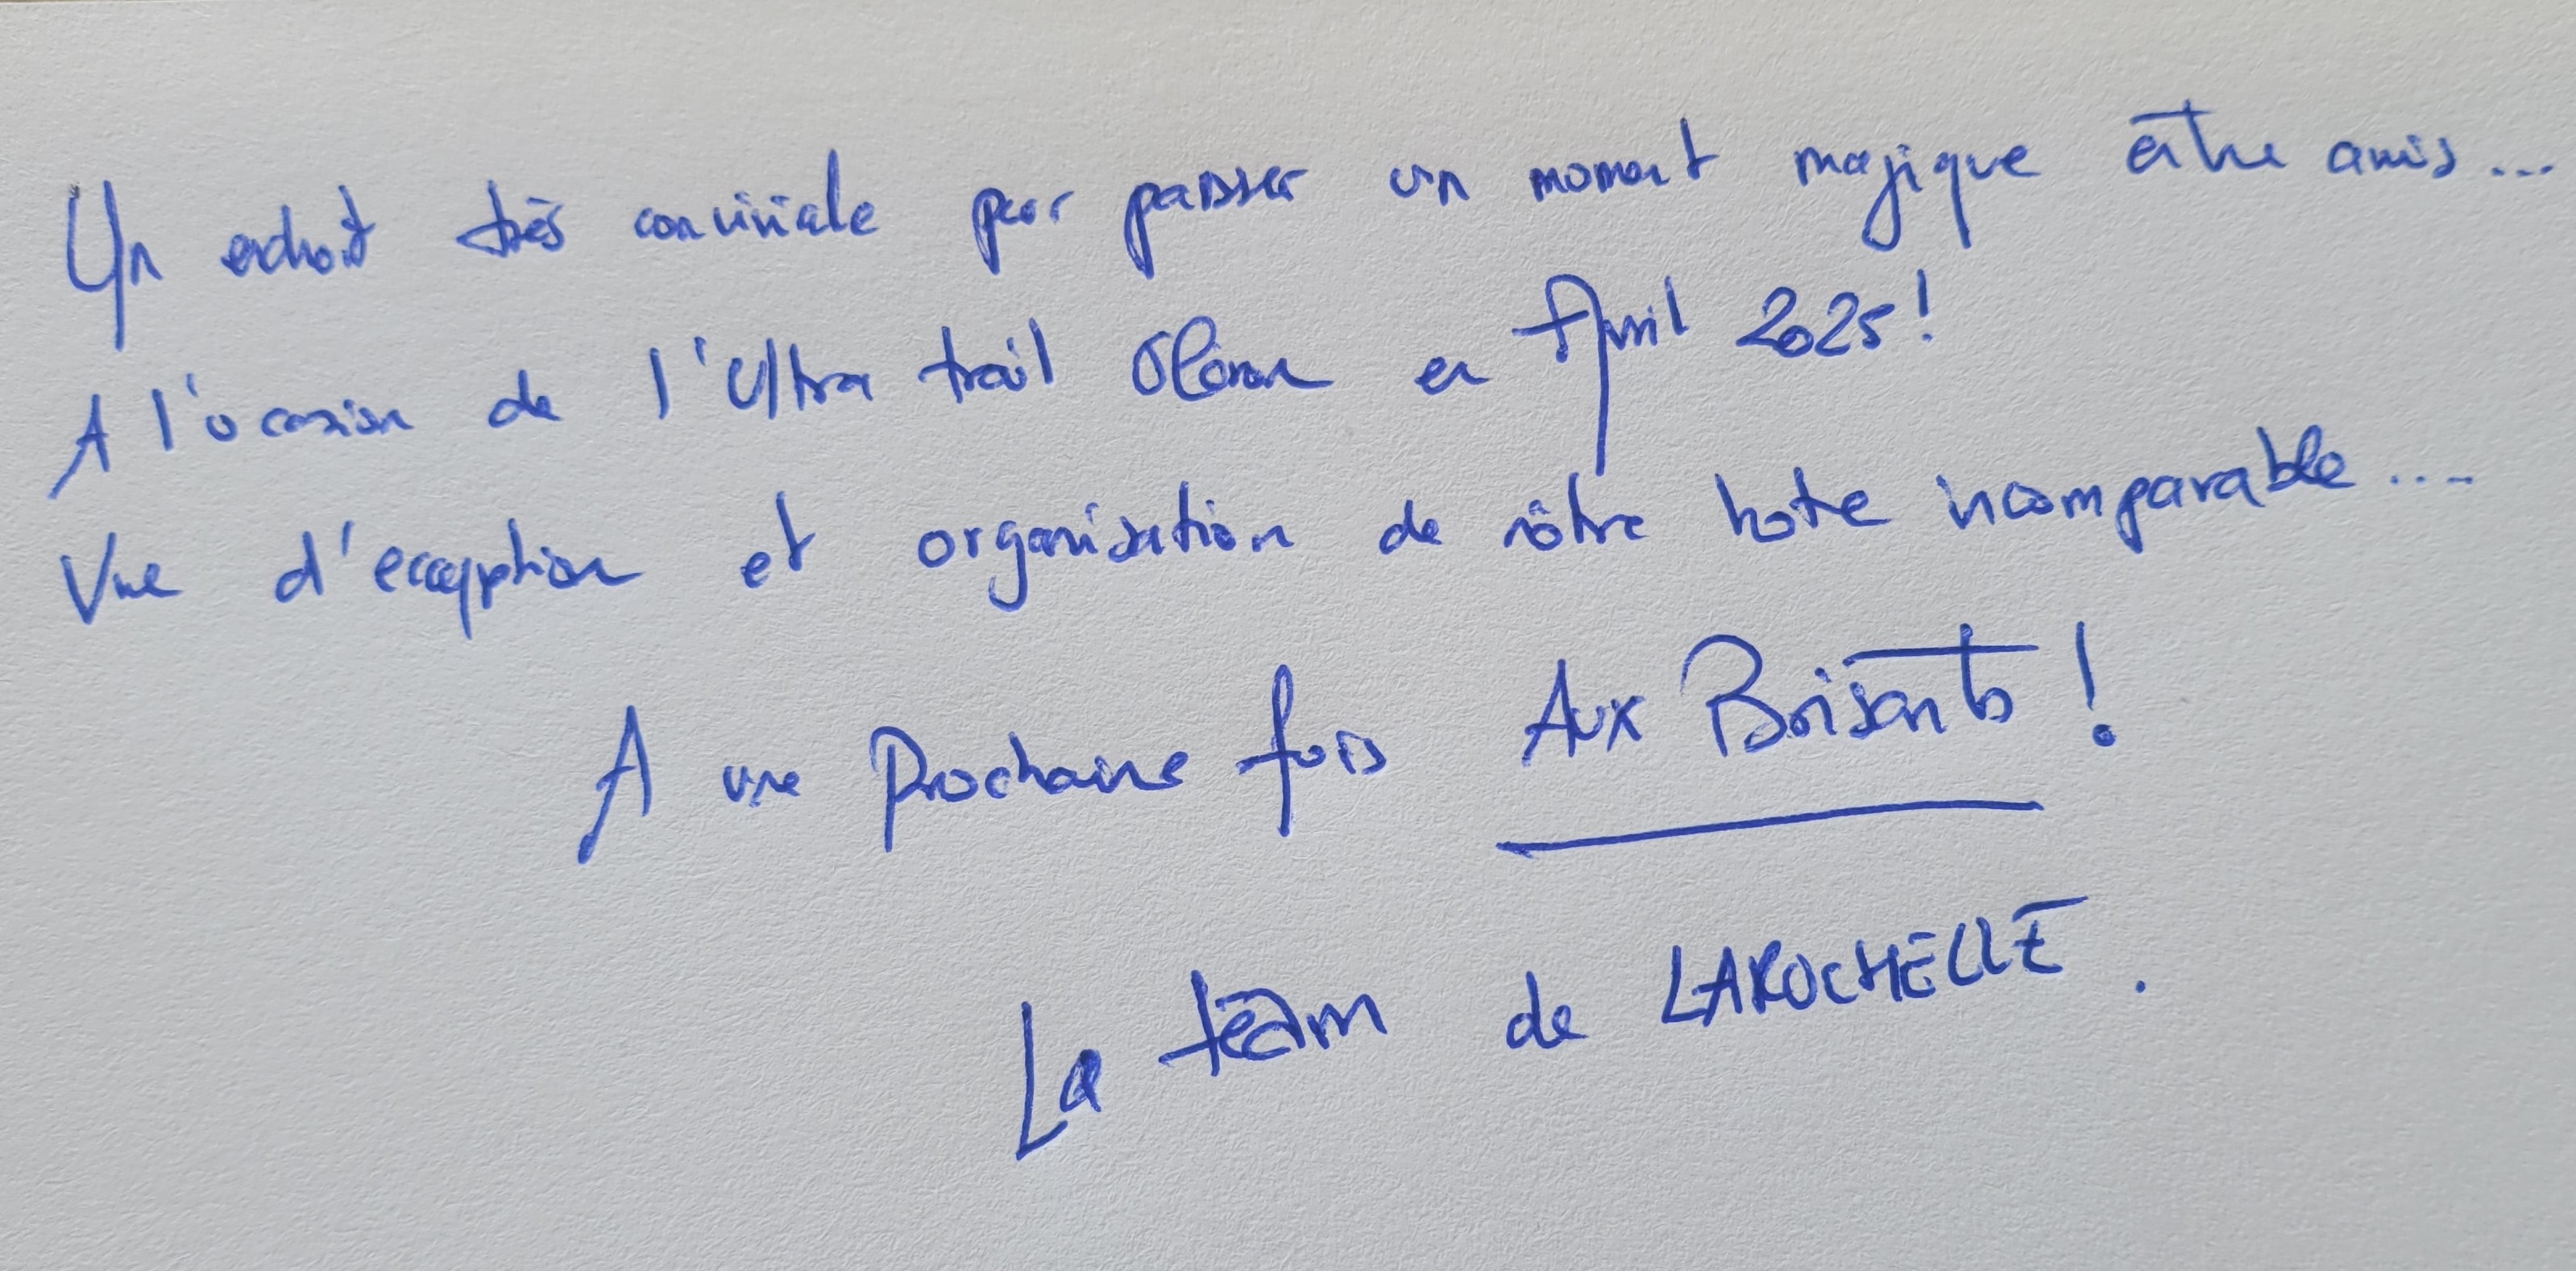 Un endroit très conviviale pour passer un moment majique entre amis...
A l'occasion de l'Ultra trail Oléron en Avril 2025!
Vue d'exception et organisation de nôtre hote incomparable....
A une Prochaine fois Aux Brisants!
La team de LAROCHELLE.